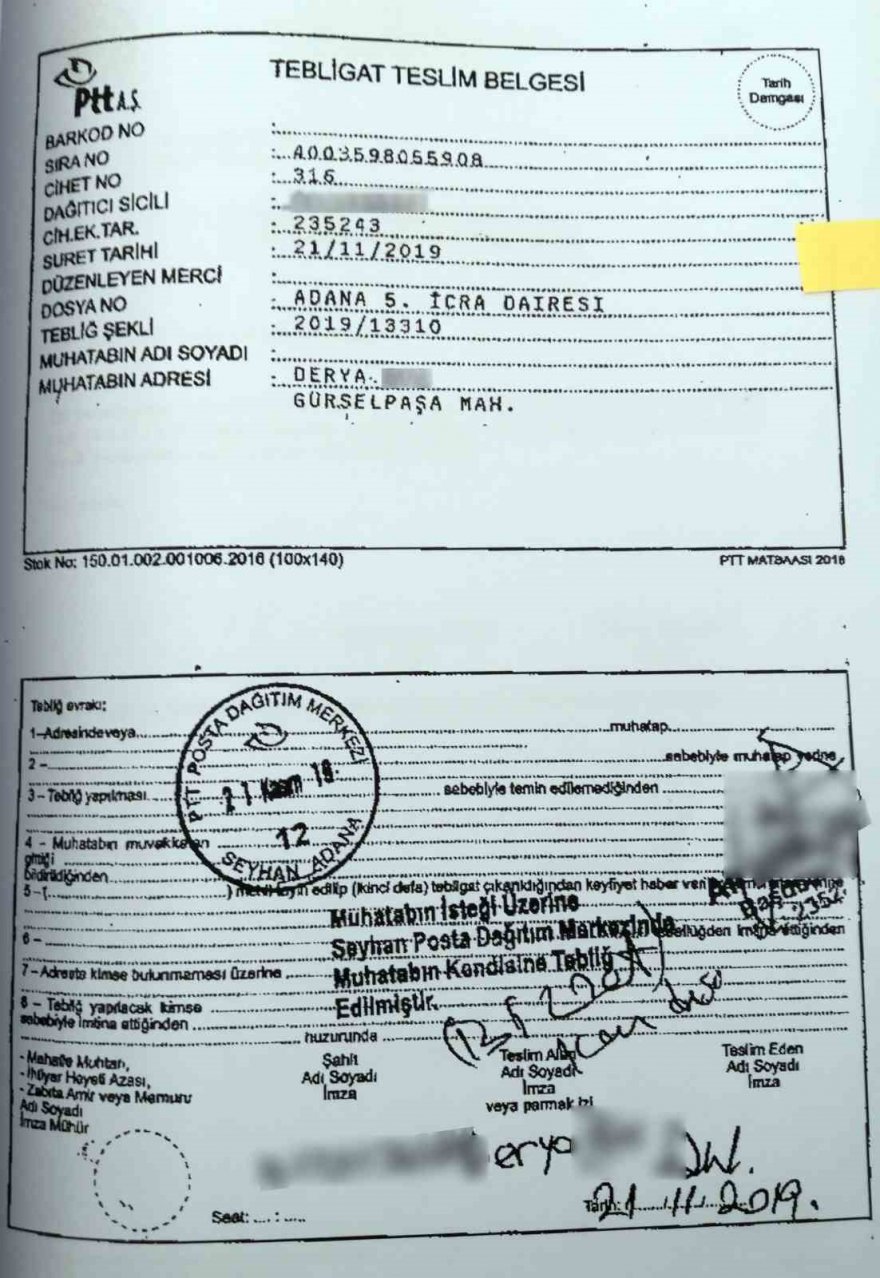 Ptt A.Ş.
TEBLİGAT TESLİM BELGESİ
Tarih
Damgası
BARKOD NO :
SIRA NO : 4003598055908
CİHET NO : 316
DAĞITICI SİCİLİ :
CİH.EK.TAR. : 235243
SURET TARİHİ : 21/11/2019
DÜZENLEYEN MERCİ :
DOSYA NO : ADANA 5. İCRA DAİRESİ
TEBLİĞ ŞEKLİ : 2019/13310
MUHATABIN ADI SOYADI :
MUHATABIN ADRESİ : DERYA
GÜRSELPAŞA MAH.
Stok No: 150.01.002.001006.2016 (100x140)
PTT MATBAASI 2018
Tebliğ evrakı;
1–Adresinde veya muhatap
2 – sebebiyle muhatap yerine
3 – Tebliğ yapılması sebebiyle temin edilemediğinden
PTT POSTA DAĞITIM MERKEZİ
21 Kasım 19
12
SEYHAN ADANA
4 – Muhatabın muvakkaten
gittiği
bildirildiğinden
5 – ( ) edilip (ikinci defa) tebligat çıkarıldığından keyfiyet haber
Muhatabın İsteği Üzerine
Seyhan Posta Dağıtım Merkezinde
Muhatabın Kendisine Tebliğ
Edilmiştir.
6 – imtina ettiğinden
7 – Adreste kimse bulunmaması üzerine
8 – Tebliğ yapılacak kimse
sebebiyle imtina ettiğinden
huzurunda
- Mahalle Muhtarı,
- İhtiyar Heyeti Azası,
- Zabıta Amir veya Memuru
Adı Soyadı
İmza Mühür
Şahit
Adı Soyadı
İmza
Teslim Alan
Adı Soyadı
İmza
veya parmak izi
Teslim Eden
Adı Soyadı
İmza
erya
Saat: .... : ....
Tarih: 21.11.2019.